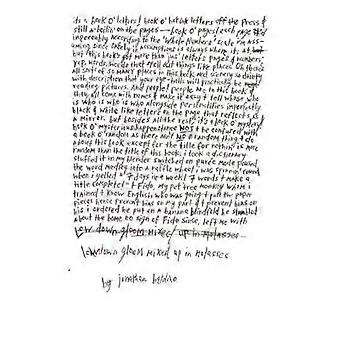 its a book o' letters / book o' hotink letters off the press &
still a-boilin' on the pages — book o' pages / each page #'d
impeccably according to the "whole numbers" scale I'm ass-
uming since safety in assumptions is always where it's at, but
this book's got more than just "letters, pages, & numbers,"
yep, words, worlds that tell about things like places. Oh there's
all sorts o' so many places in this book and scenery so dainty
with description that your eyes will positively be
reading pictures. And people! people me in this book &
they all come with names & make it easy & tell whose who
is who is wie is who alongside personalities imperfectly
black & white like letters on the page that reflects as
a mirror. but besides all the rest, it's a book o' mystery
book o' mysterious happenstance NOT to be confused with
a book o' random as there was NO random thing & do
about this book except for the title for nothing is more
random than the title of this book. i took a dictionary
stuffed it in my blender switched on pureé mode placed
the word medley into a raffle wheel i was spinnin' round
when i yelled at "7 days in a week! 7 words & make a
title complete!" t' Fido, my pet tree monkey whom i
trained & know English, who was going & pull the paper
pieces hence prevent bias on my part & & prevent bias on
his i ordered he put on a banana blindfold he stumbled
about the home to upon of Fido since, left me with
low down gloom mixed up in molasses
lowdown gloom mixed up in molasses
by jonathan